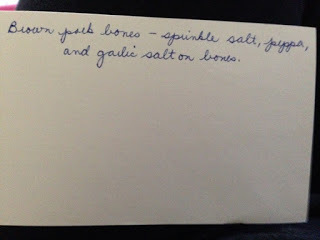 Brown pork bones - sprinkle salt, pepper,
and garlic salt on bones.